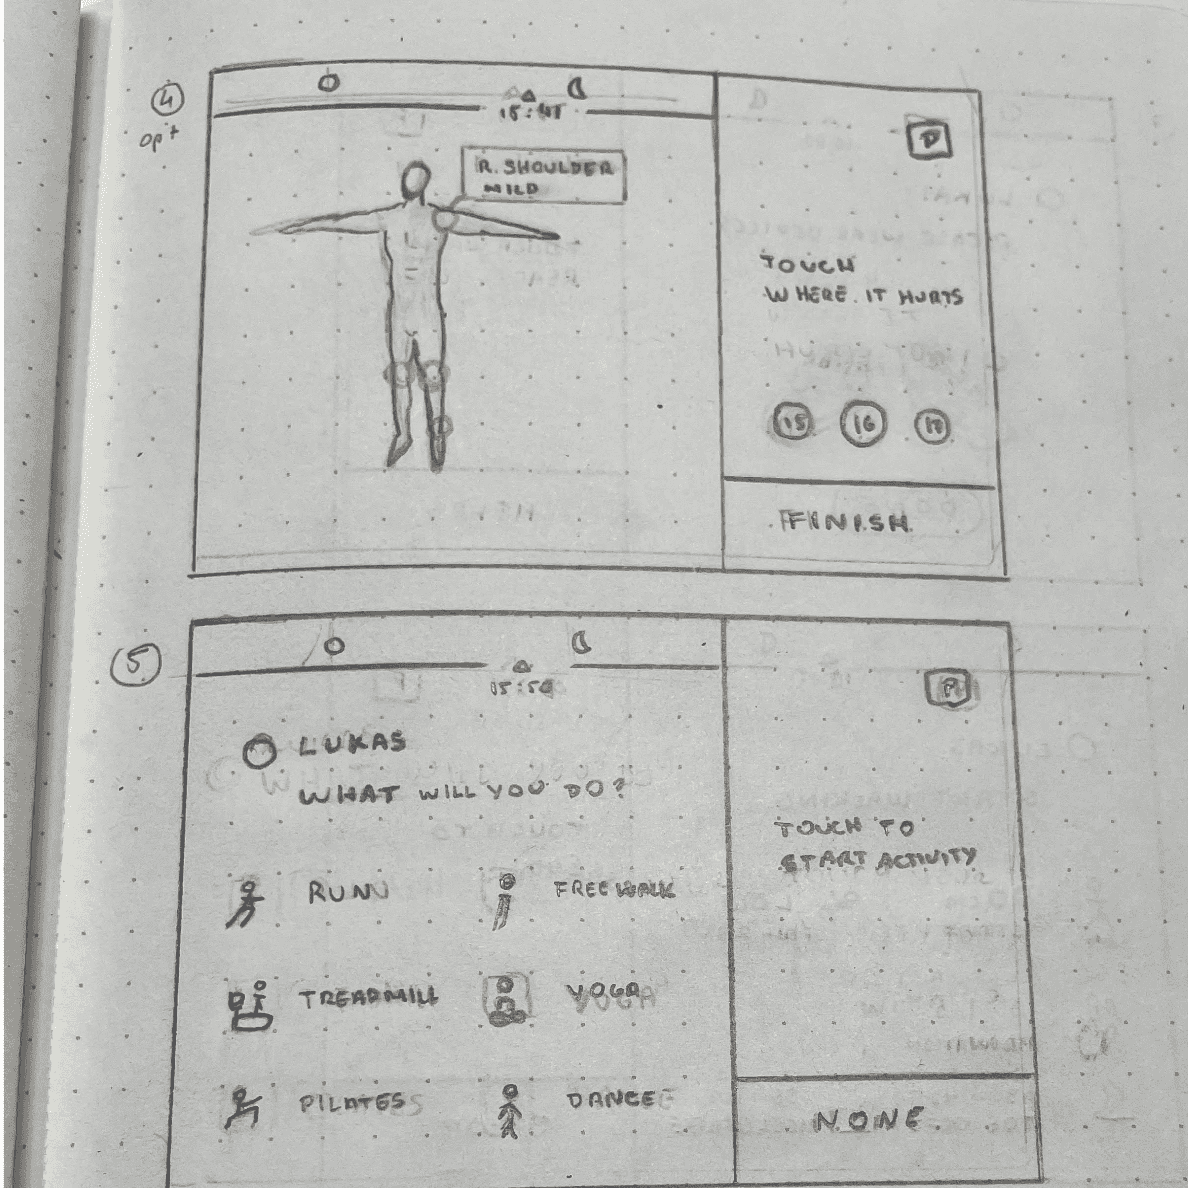 4
opt
R. SHOULDER
MILD
TOUCH
WHERE IT HURTS
15 16 17
FINISH
5
15:50
P
LUKAS
WHAT WILL YOU DO?
TOUCH TO
START ACTIVITY
RUN
FREE WALK
TREADMILL
YOGA
PILATES
DANCE
NONE